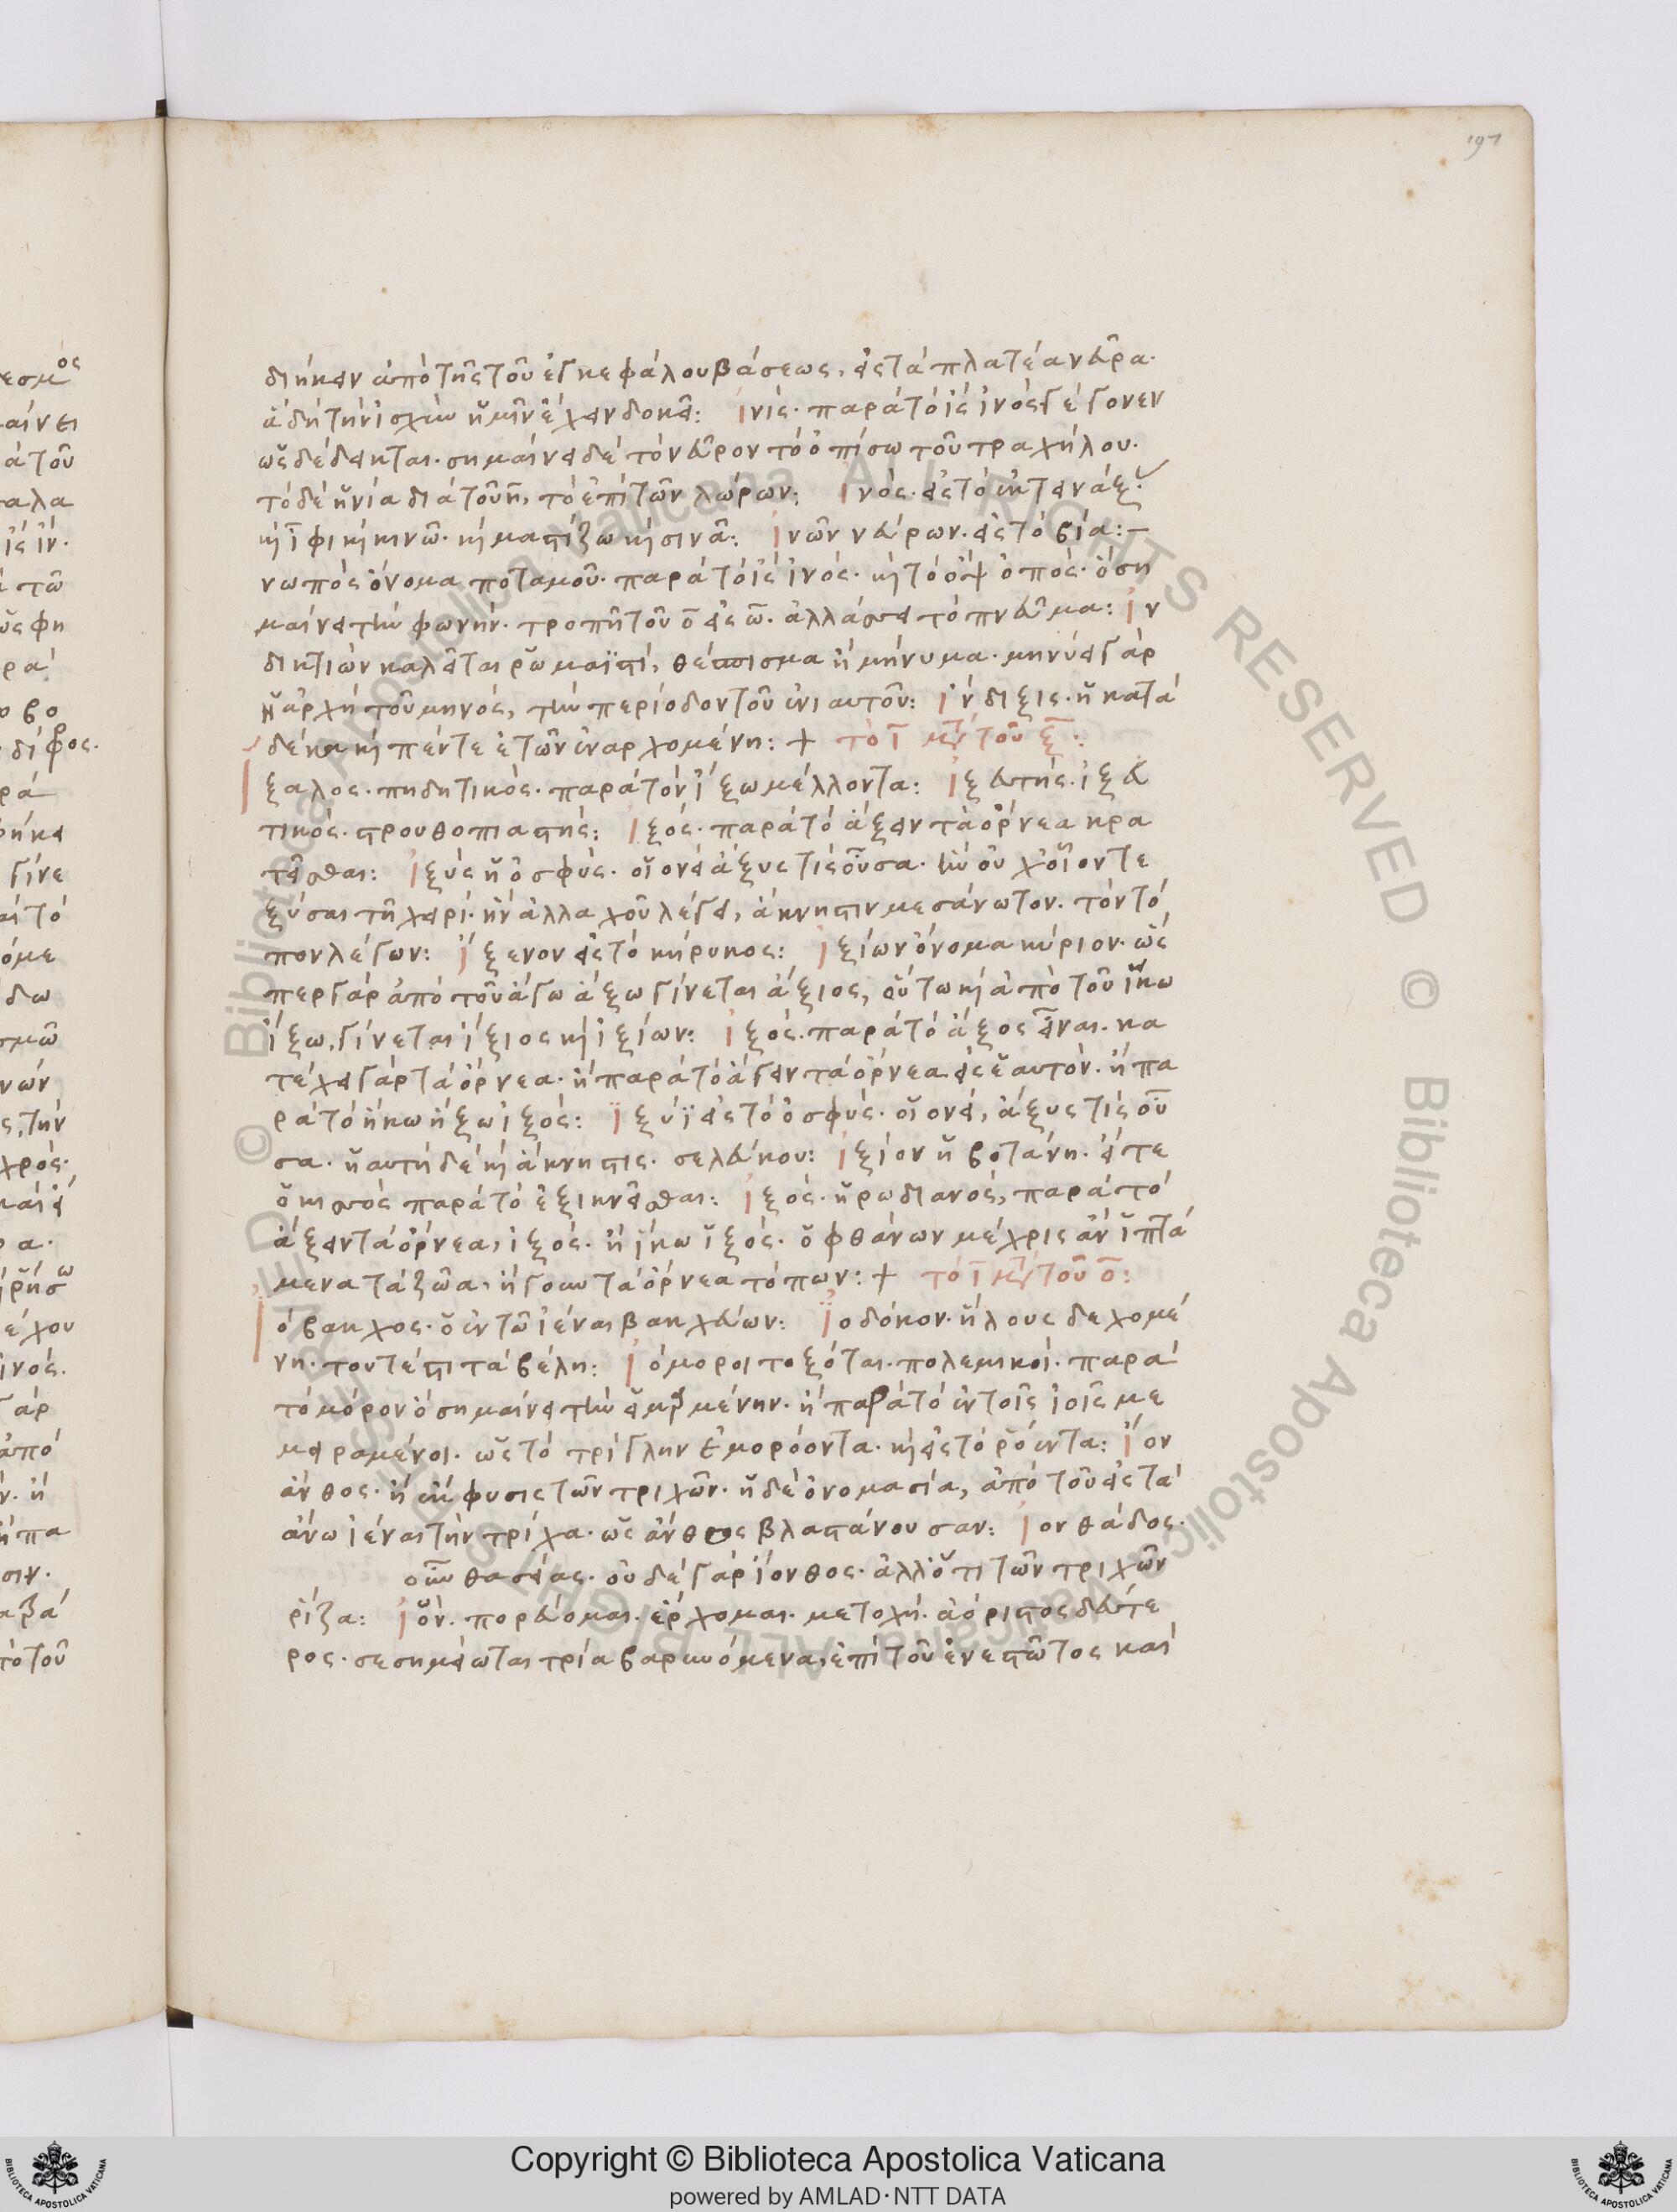 197
διήκειν ἀπὸ τῆς τοῦ ἐγκεφάλου βάσεως, εἰς τὰ πλατέα νεῦρα·
ἃ δὴ τὴν ἰσχὺν ἡμῖν ἔχειν δοκεῖ: ἰνίς· παρὰ τὸ ἲς ἰνὸς γέγονεν
ὡς δέδεικται· σημαίνει δὲ τὸν νεῦρον τὸ ὀπίσω τοῦ τραχήλου·
τὸ δὲ ἡνία διὰ τοῦ η, τὸ ἐπὶ τῶν λώρων: ἰνός· εἰς τὸ
κὴ ἶφι κὴ κινῶ· κὴ μαστίζω κὴ σινᾶ: ἰνῶν νεύρων· εἰς τὸ βία:-
νωπὸς ὄνομα ποταμοῦ· παρὰ τὸ ἲς ἰνὸς· κὴ τὸ ὂψ ὀπός· ὃ ση
μαίνει τὴν φωνήν· τροπῇ τοῦ ο εἰς ω· ἀλλάσσει τὸ πνεῦμα: ἰν
δικτιὼν καλεῖται ῥωμαϊστὶ, θέσπισμα ἢ μήνυμα· μηνύει γὰρ
ἡ ἀρχὴ τοῦ μηνός, τὴν περίοδον τοῦ ἐνιαυτοῦ: ἴνδιξις· ἡ κατὰ
δέκα κὴ πέντε ἐτῶν ἐναρχομένη: + τὸ ι μετὰ τοῦ ξ:
ἴξαλος· πηδητικός· παρὰ τὸν ἵξω μέλλοντα: ἰξευτής· ἰξευ
τικός· στρουθοπιαστής: ἰξός· παρὰ τὸ ἄξειν τὰ ὄρνεα κρα
τεῖσθαι: ἰξὺς ἡ ὀσφύς· οἱονεὶ ἄξυς τις οὖσα· ἣν οὐχ οἷόν τε
ξύσαι τῇ χειρί· ἣν ἀλλαχοῦ λέγει, ἄκνηστιν μεσάνωτον· τὸν τό
πον λέγων: ἴξενον εἰς τὸ κήρυκος: ἰξίων ὄνομα κύριον· ὥς
περ γὰρ ἀπὸ τοῦ ἄγω ἄξω γίνεται ἄξιος, οὕτω κὴ ἀπὸ τοῦ ἵκω
ἵξω, γίνεται ἵξιος κὴ ἰξίων: ἰξός· παρὰ τὸ ἄξος εἶναι· κα
τέχει γὰρ τὰ ὄρνεα· ἢ παρὰ τὸ ἄγειν τὰ ὄρνεα εἰς ἑαυτόν· ἢ πα
ρὰ τὸ ἥκω ἥξω ἰξός: ἰξύϊ εἰς τὸ ὀσφύς· οἱονεὶ, ἄξυς τις οὖ
σα· ἡ αὐτὴ δὲ κὴ ἄκνηστις· σελεύκου: ἰξίον ἡ βοτάνη· εἴτε
ὁ κισσὸς παρὰ τὸ ἐξικνεῖσθαι: ἰξός· ἡρωδιανός, παρὰ τὸ
ἄξειν τὰ ὄρνεα, ἰξός· ἢ ἵκω ἱξός· ὁ φθάνων μέχρις ἂν ἱπτά
μενα τὰ ζῶα, ἤγουν τὰ ὄρνεα τόπων: + τὸ ι μετὰ τοῦ ο:
ἰόβακχος· ὁ ἐν τῷ ἰέναι βακχεύων: ἰοδόκον· ἥλους δεχομέ
νη· τουτέστι τὰ βέλη: ἰόμοροι τοξόται· πολεμικοί· παρὰ
τὸ μόρον ὃ σημαίνει τὴν εἱμαρμένην· ἢ παρὰ τὸ ἐν τοῖς ἰοῖς με
μειραμένοι· ὡς τὸ τρίγλην ἐμορόοντα· κὴ εἰς τὸ ῥόεντα: ἴον
ἄνθος· ἢ ἔκφυσις τῶν τριχῶν· ἡ δὲ ὀνομασία, ἀπὸ τοῦ εἰς τὰ
ἄνω ἰέναι τὴν τρίχα· ὡς ἄνθος βλαστάνουσαν: ἰονθάδος·
θασείας· οὐδὲ γὰρ ἴονθος· ἀλλ' ὅτι τῶν τριχῶν
ῥίζα: ἰόν· πορεύομαι· ἔρχομαι· μετοχή· ἀόριστος δεύτε
ρος· σεσημείωται τρία βαρυνόμενα, ἐπὶ τοῦ ἐνεστῶτος καὶ
Copyright © Biblioteca Apostolica Vaticana
powered by AMLAD·NTT DATA